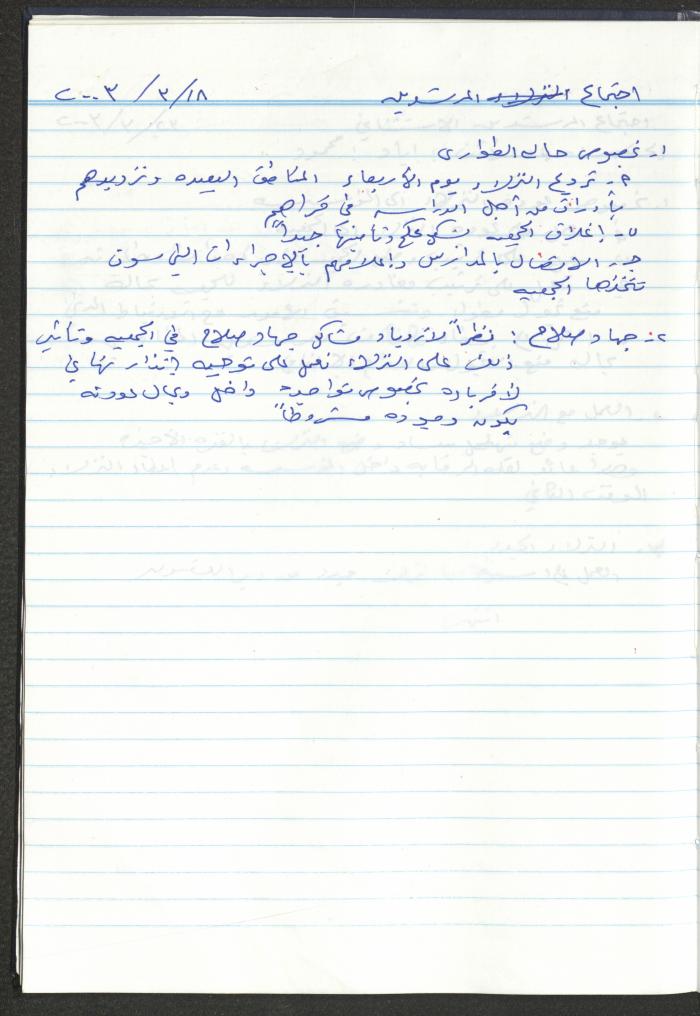 اجتماع المرشدين ١٨/٣/٢٠٠٣
١- بخصوص حالة الطوارئ
أ- ترويح النزلاء يوم الأربعاء المناطق البعيده وتزويدهم
بأوراق من أجل الدراسه في قراهم
ب- إغلاق الجمعيه بشكل محكم وتأمينها جيداً
ج- الاتصال بالمدارس وإعلامهم بالإجراءات التي سوف
تتخذها الجمعيه
٢- جهاد صلاح : نظراً لازدياد مشاكل جهاد صلاح في الجمعيه وتأثير
ذلك على النزلاء نعمل على توجيه إنذار نهائي
لأقرباءه بخصوص تواجده داخل وبحال عودته
يكون وجوده مشروطاً